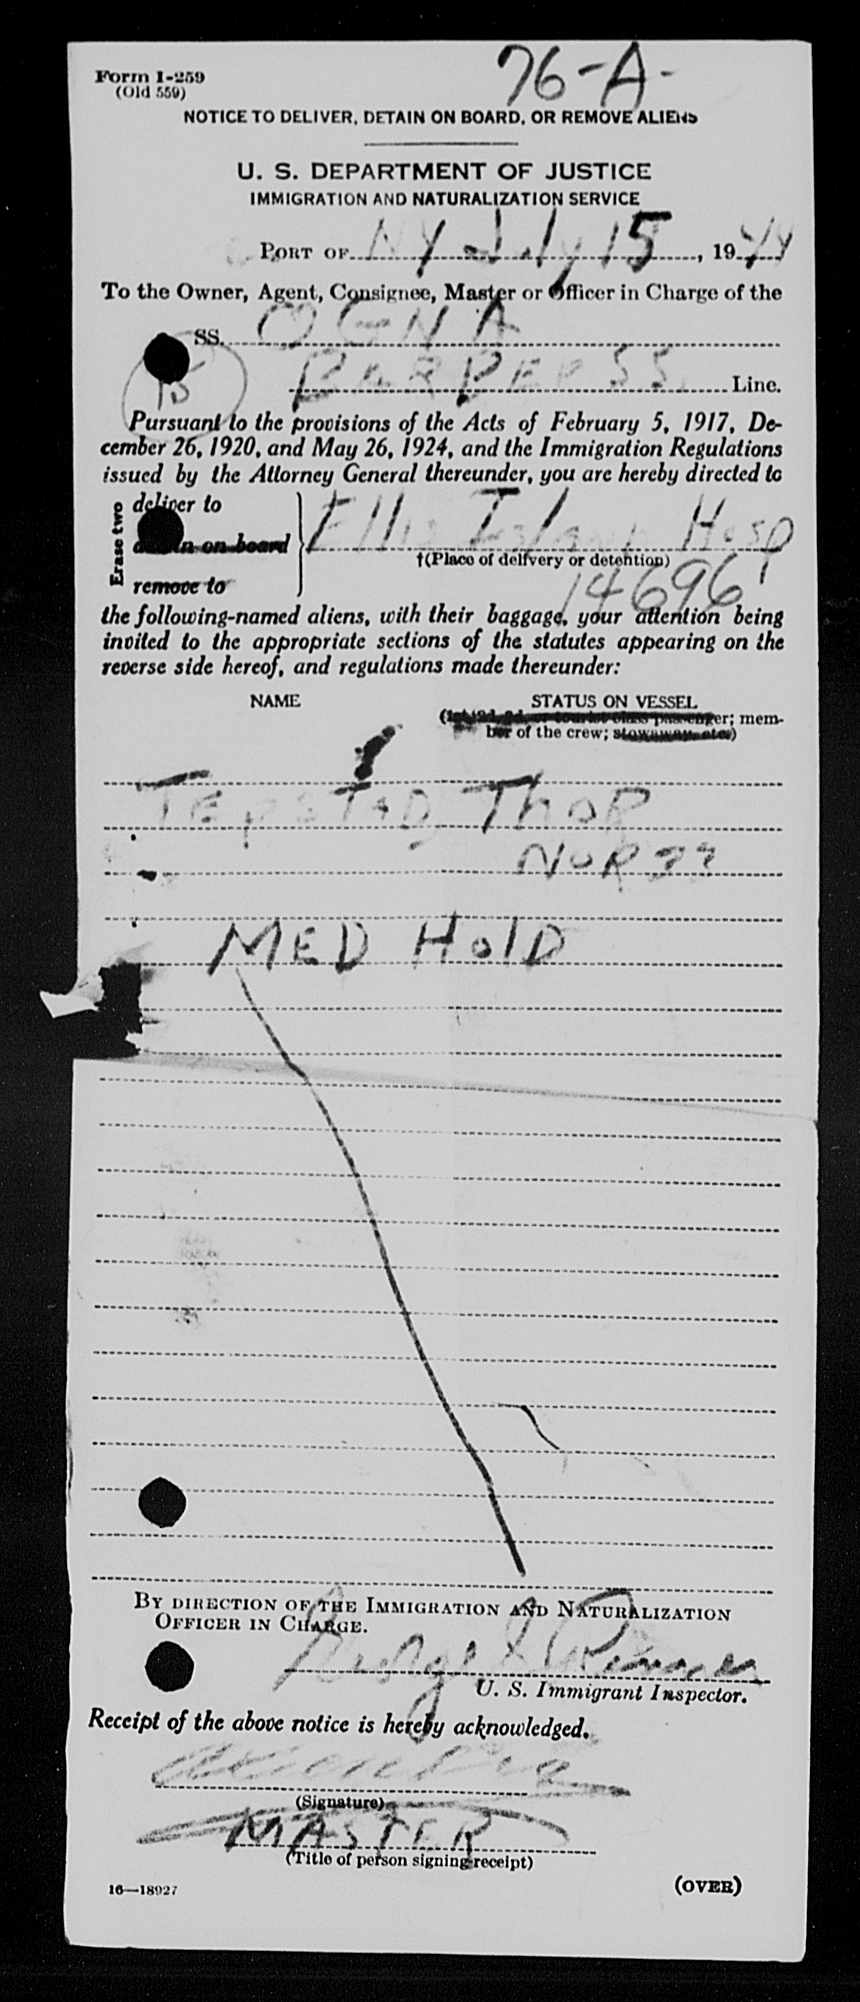 Form I-259
(Old 559)
76-A-
NOTICE TO DELIVER, DETAIN ON BOARD, OR REMOVE ALIENS
U. S. DEPARTMENT OF JUSTICE
IMMIGRATION AND NATURALIZATION SERVICE
PORT OF NY July 15, 1944
To the Owner, Agent, Consignee, Master or Officer in Charge of the
SS. OGNA
15
BARBER SS. Line.
Pursuant to the provisions of the Acts of February 5, 1917, De-
cember 26, 1920, and May 26, 1924, and the Immigration Regulations
issued by the Attorney General thereunder, you are hereby directed to
Erase two
deliver to
detain on board
remove to
Ellis Island Hosp
†(Place of delivery or detention)
14696
the following-named aliens, with their baggage, your attention being
invited to the appropriate sections of the statutes appearing on the
reverse side hereof, and regulations made thereunder:
NAME
STATUS ON VESSEL
(1st, 2d, 3d, or tourist class passenger; mem-
ber of the crew; stowaway, etc.)
THOR
NOR
MED HOLD
BY DIRECTION OF THE IMMIGRATION AND NATURALIZATION
OFFICER IN CHARGE.
George
U. S. Immigrant Inspector.
Receipt of the above notice is hereby acknowledged.
(Signature)
MASTER
(Title of person signing receipt)
16—18927
(OVER)